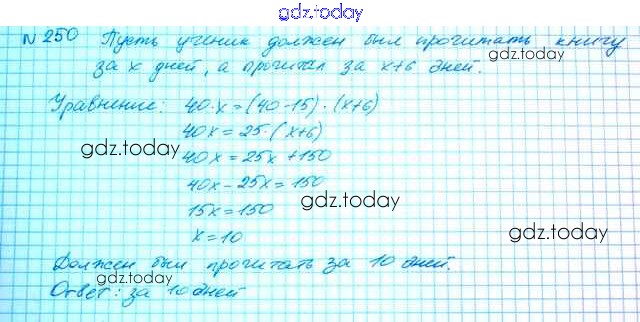 gdz.today
№ 250 Пусть ученик должен был прочитать книгу
за x дней, а прочитал за x+6 дней.
Уравнение: 40·x=(40-15)·(x+6)
40x=25·(x+6)
gdz.today
40x=25x+150
40x-25x=150
gdz.today
15x=150
x=10
gdz.today
Должен был прочитать за 10 дней.
gdz.today
Ответ: за 10 дней